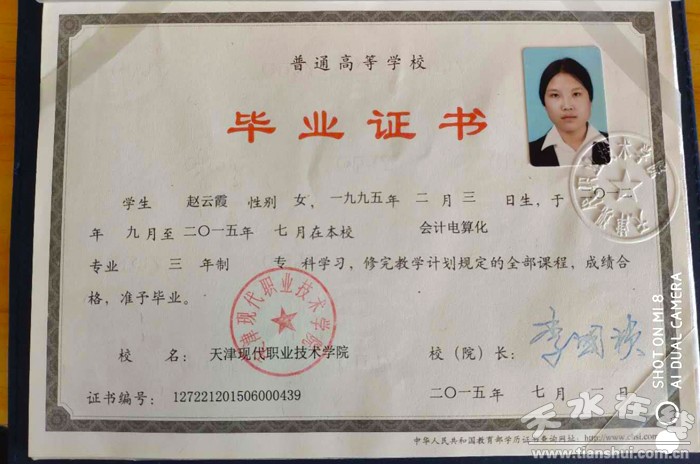 普通高等学校
毕业证书
学生 赵云霞 性别 女，一九九五年 二月三 日生，于
年 九月至二〇一五年 七月在本校 会计电算化
专业 三 年制 专 科学习，修完教学计划规定的全部课程，成绩合
格，准予毕业。
天津现代职业技术学院
校 名： 天津现代职业技术学院 校（院）长：
李国祯
证书编号： 127221201506000439 二〇一五年 七月 一日
中华人民共和国教育部学历证书查询网址：http://www.chsi.com.cn
天水在线
www.tianshui.com.cn
SHOT ON MI 8
AI DUAL CAMERA